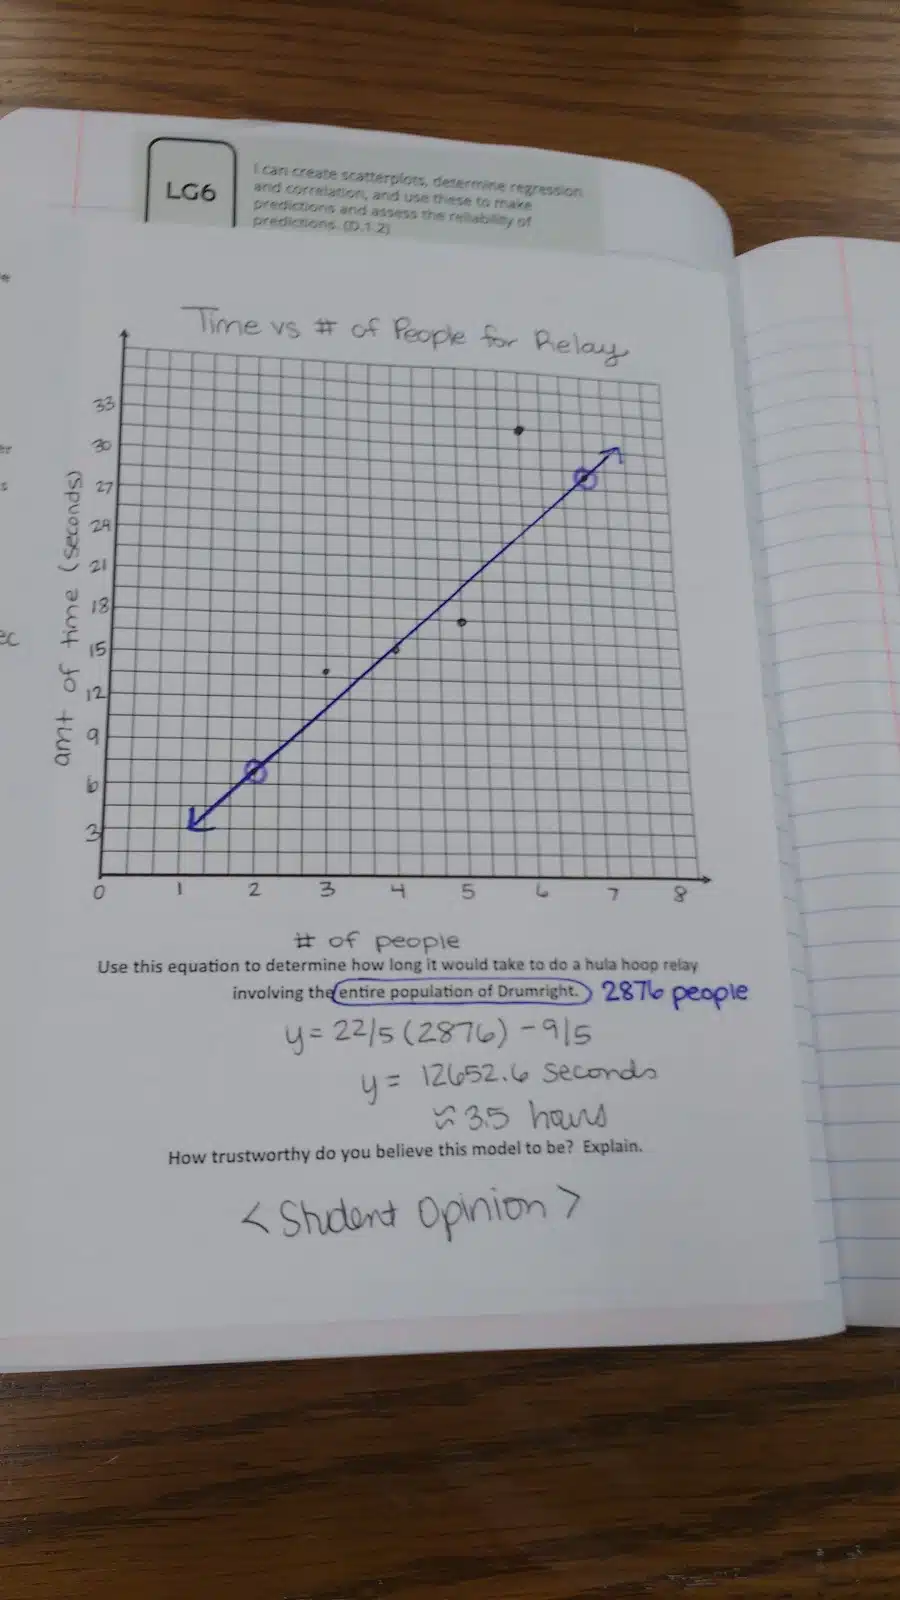 LG6
I can create scatterplots, determine regression
and correlation, and use these to make
predictions and assess the reliability of
predictions. (D.1.2)
Time vs # of People for Relay
amt of time (seconds)
33
30
27
24
21
18
15
12
9
6
3
0 1 2 3 4 5 6 7 8
# of people
Use this equation to determine how long it would take to do a hula hoop relay
involving the entire population of Drumright. 2876 people
y = 22/5 (2876) - 9/5
y = 12652.6 seconds
≈ 3.5 hours
How trustworthy do you believe this model to be? Explain.
< Student Opinion >